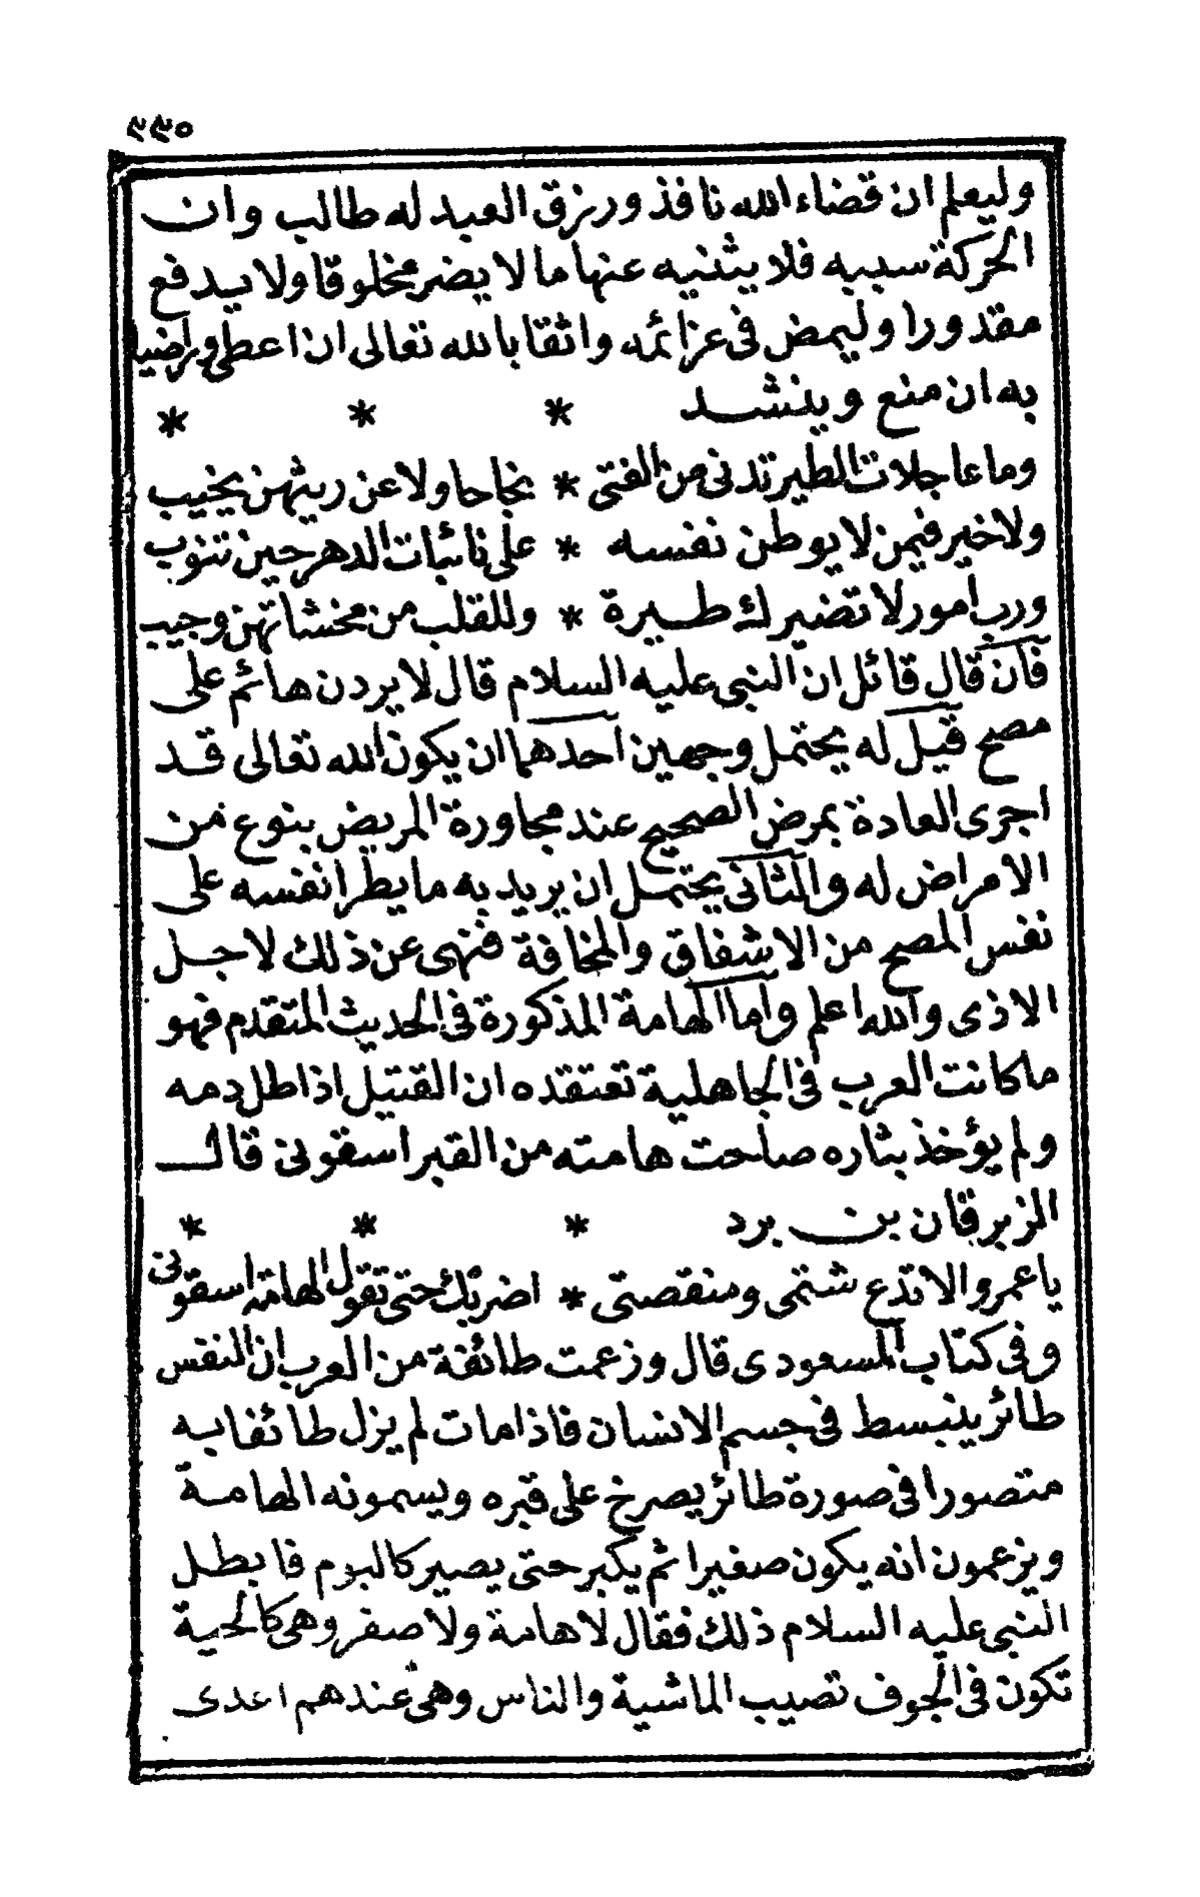 ٢٢٥
وليعلم ان قضاء الله نافذ ورزق العبد له طالب وان
الحركة سببه فلا يثنيه عنها ما لا يضر مخلوقا ولا يدفع
مقدورا وليمض فى عزائمه واثقا بالله تعالى ان اعطى وراضيا
به ان منع وينشد * * *
وما عاجلات الطير تدنى من الفتى * نجاحا ولا عن ريثهن يخيب
ولا خير فيمن لا يوطن نفسه * على نائبات الدهر حين تنوب
ورب امور لا تضيرك ضيرة * وللقلب من مخشاتهن وجيب
فان قال قائل ان النبى عليه السلام قال لا يردن هائم على
مصح قيل له يحتمل وجهين احدهما ان يكون الله تعالى قد
اجرى العادة بمرض الصحيح عند مجاورة المريض بنوع من
الامراض له والثانى يحتمل ان يريد به ما يطرا نفسه على
نفس المصح من الاشفاق والمخافة فنهى عن ذلك لاجل
الاذى والله اعلم واما الهامة المذكورة فى الحديث المتقدم فهو
ما كانت العرب فى الجاهلية تعتقده ان القتيل اذا طل دمه
ولم يؤخذ بثاره صاحت هامته من القبر اسقونى قال
الزبرقان بن برد * * *
يا عمرو الا تدع شتمى ومنقصتى * اضربك حتى تقول الهامة اسقونى
وفى كتاب المسعودى قال وزعمت طائفة من العرب ان النفس
طائر ينبسط فى جسم الانسان فاذا مات لم يزل طائفا به
متصورا فى صورة طائر يصرخ على قبره ويسمونه الهامة
ويزعمون انه يكون صغيرا ثم يكبر حتى يصير كالبوم فابطل
النبى عليه السلام ذلك فقال لا هامة ولا صفر وهى كالحية
تكون فى الجوف تصيب الماشية والناس وهى عندهم اعدى